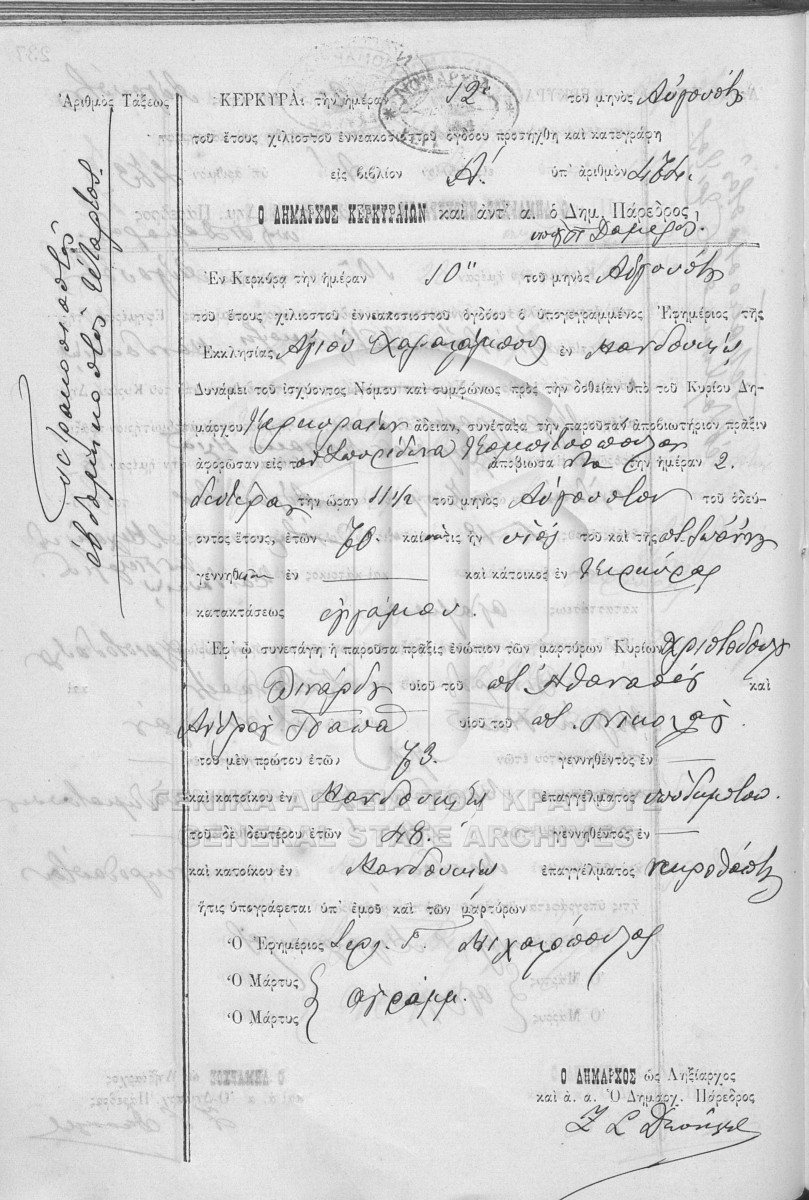 Ἀριθμὸς Τάξεως
τετρακόσια
ἑβδομήκοντα τέσσαρα
ΚΕΡΚΥΡΑι τὴν ἡμέραν 12 τοῦ μηνὸς Αὐγούστου
τοῦ ἔτους χιλιοστοῦ ἐννεακοσιοστοῦ ὀγδόου προτήχθη καὶ κατεγράφη
εἰς βιβλίον Α'. ὑπ' ἀριθμὸν 474.
Ο ΔΗΜΑΡΧΟΣ ΚΕΡΚΥΡΑΙΩΝ καὶ ἀντ' α. ὁ Δημ. Πάρεδρος
Ἐν Κερκύρᾳ τὴν ἡμέραν 10 τοῦ μηνὸς Αὐγούστου
τοῦ ἔτους χιλιοστοῦ ἐννεακοσιοστοῦ ὀγδόου ὁ ὑπογεγραμμένος Ἐφημέριος τῆς
Ἐκκλησίας Ἁγίου Χαραλάμπους ἐν Μανδουκίῳ
Δυνάμει τοῦ ἰσχύοντος Νόμου καὶ συμφώνως πρὸς τὴν δοθεῖσαν ὑπὸ τοῦ Κυρίου Δη-
μάρχου Κερκυραίων ἄδειαν, συνέταξα τὴν παροῦσαν ἀποβιωτήριον πρᾶξιν
ἀφορῶσαν εἰς τὸν Σπυρίδωνα ἀποβιώσαντα τὴν ἡμέραν 2.
δευτέρα τὴν ὥραν 11 1/2 τοῦ μηνὸς Αὐγούστου τοῦ ὁδεύ-
οντος ἔτους, ἐτῶν 70 καὶ ὅστις ἦν υἱὸς τοῦ καὶ τῆς ποτ. Ἰωάννου
γεννηθεὶς ἐν — καὶ κάτοικος ἐν Κερκύρᾳ
κατακτάσεως ἐγγάμου.
Ἐφ' ᾧ συνετάγη ἡ παροῦσα πρᾶξις ἐνώπιον τῶν μαρτύρων Κυρίων Χριστοδούλου
υἱοῦ τοῦ ποτ. Ἀθανασίου καὶ
Ἀνδρέου Παπᾶ υἱοῦ τοῦ ποτ. Νικολάου.
τοῦ μὲν πρώτου ἐτῶν 73. γεννηθέντος ἐν —
καὶ κατοίκου ἐν Μανδουκίῳ ἐπαγγέλματος ὑποδηματοπ.
τοῦ δὲ δευτέρου ἐτῶν 48. γεννηθέντος ἐν —
καὶ κατοίκου ἐν Μανδουκίῳ ἐπαγγέλματος νεκροθάπτου
ἥτις ὑπογράφεται ὑπ' ἐμοῦ καὶ τῶν μαρτύρων
Ὁ Ἐφημέριος
Ὁ Μάρτυς
ἀγράμμ.
Ὁ Μάρτυς
Ο ΔΗΜΑΡΧΟΣ ὡς Ληξίαρχος
καὶ ἀ. α. Ὁ Δημαρχ. Πάρεδρος
ΓΕΝΙΚΑ ΑΡΧΕΙΑ ΤΟΥ ΚΡΑΤΟΥΣ
GENERAL STATE ARCHIVES